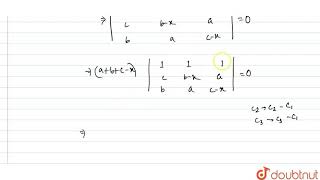 ⇒ | | = 0
c b-x a
b a c-x
⇒ (a+b+c-x) | 1 1 1 | = 0
c b-x a
b a c-x
C₂→C₂-C₁
C₃→C₃-C₁
⇒
doubtnut